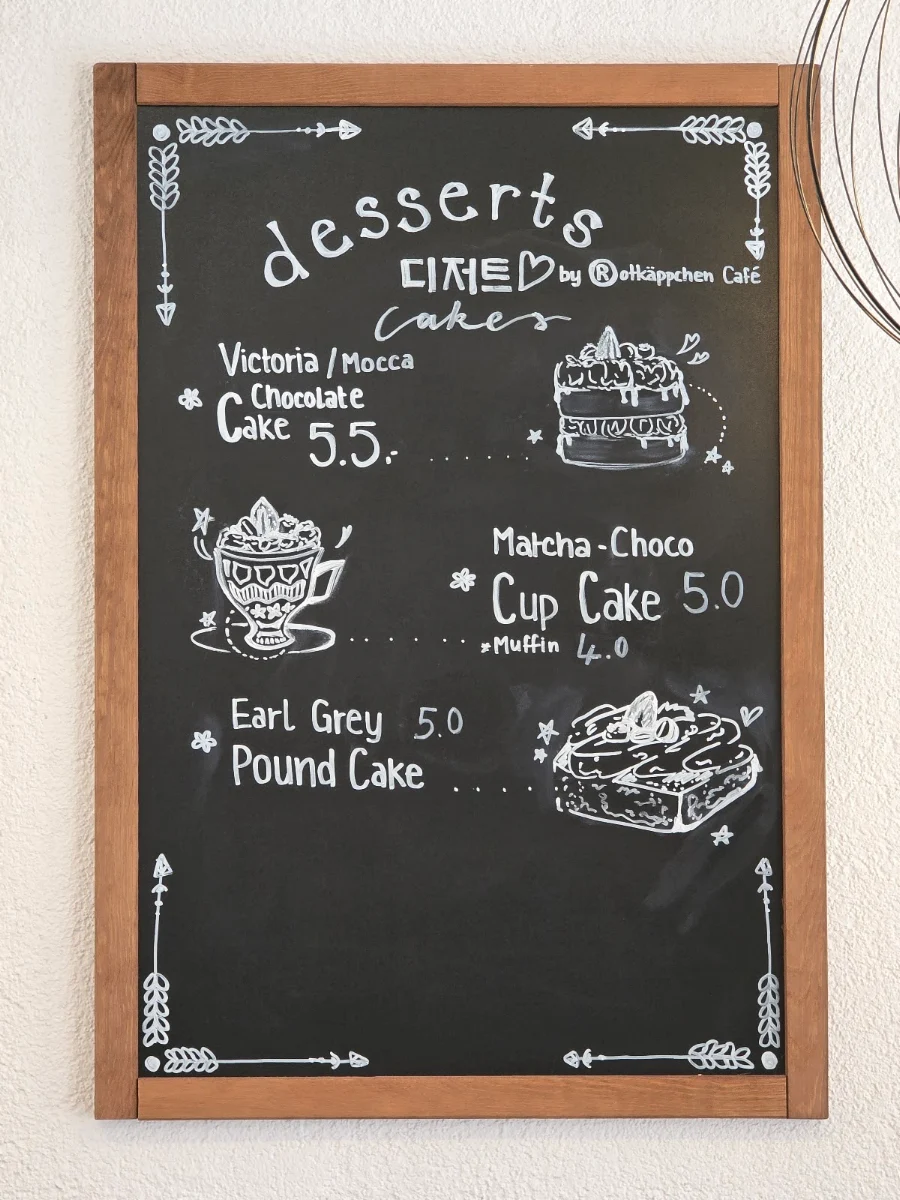 desserts
디저트♡ by Ⓡotkäppchen Café
cakes
Victoria / Mocca
Chocolate
Cake 5.5.-
Matcha - Choco
Cup Cake 5.0
*Muffin 4.0
Earl Grey 5.0
Pound Cake